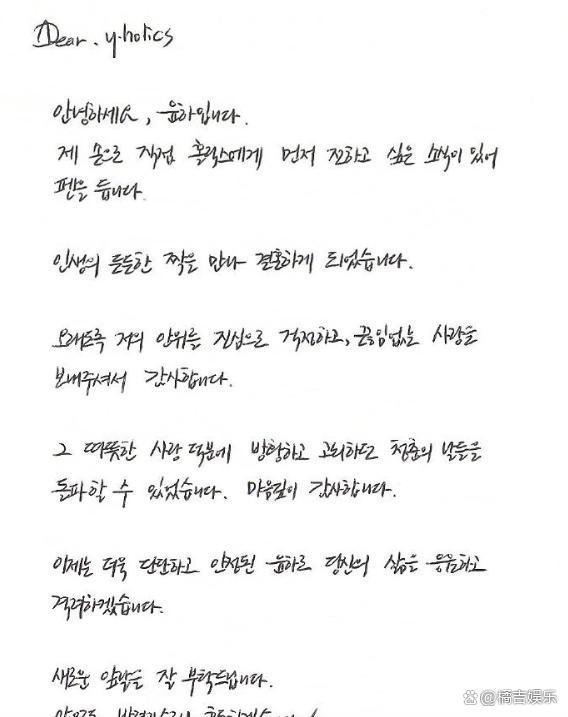 Dear. y.holics
안녕하세요, 윤하입니다.
제 손으로 직접 홀릭스에게 먼저 전하고 싶은 소식이 있어
펜을 듭니다.
인생의 든든한 짝을 만나 결혼하게 되었습니다.
오래도록 저의 안위를 진심으로 걱정하고, 끊임없는 사랑을
보내주셔서 감사합니다.
그 따뜻한 사랑 덕분에 방황하고 고뇌하던 청춘의 날들을
돌파할 수 있었습니다. 마음깊이 감사합니다.
이제는 더욱 단단하고 안정된 윤하로 당신의 삶을 응원하고
격려하겠습니다.
새로운 앞날을 잘 부탁드립니다.
橘吉娱乐